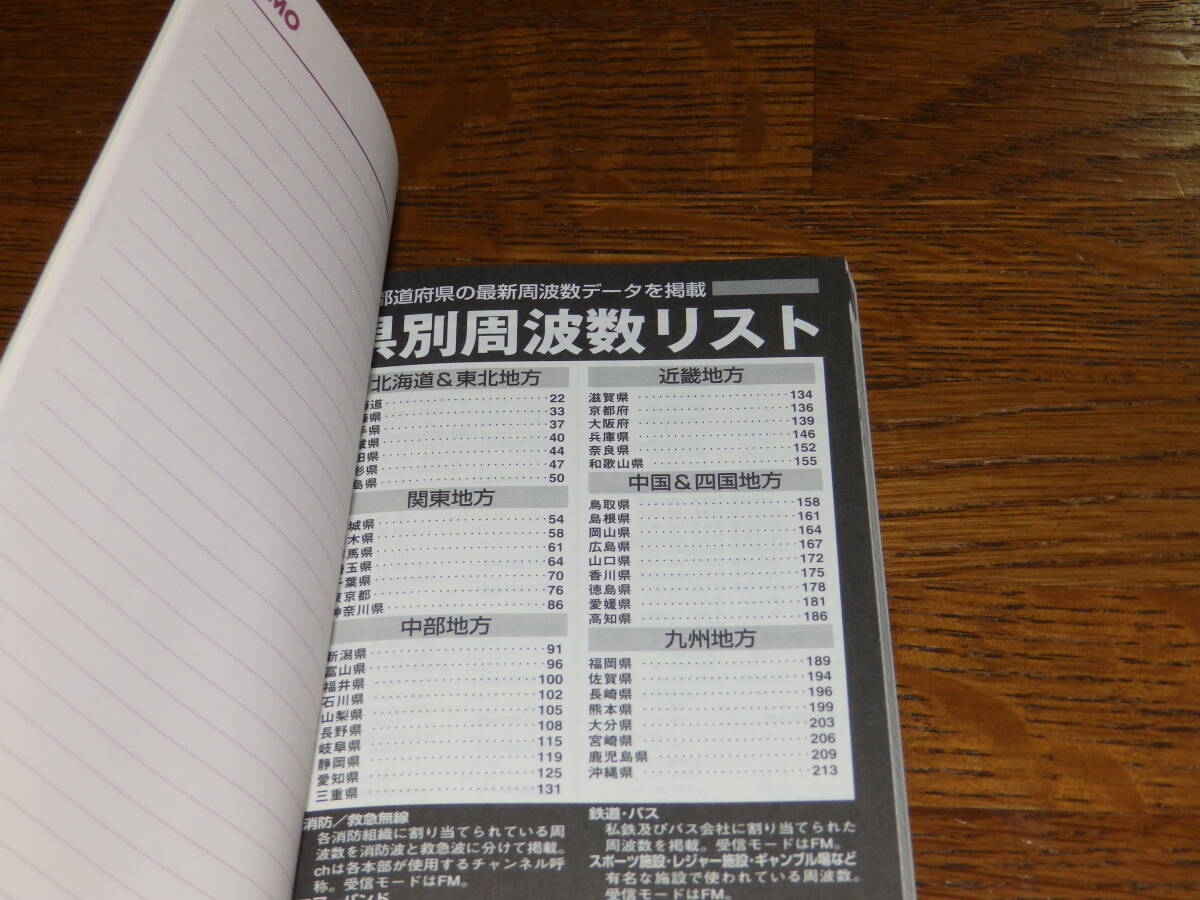 MO
都道府県の最新周波数データを掲載
県別周波数リスト
北海道&東北地方
海道 22
森県 33
手県 37
城県 40
田県 44
形県 47
島県 50
関東地方
城県 54
木県 58
群馬県 61
埼玉県 64
千葉県 70
東京都 76
神奈川県 86
中部地方
新潟県 91
富山県 96
福井県 100
石川県 102
山梨県 105
長野県 108
岐阜県 115
静岡県 119
愛知県 125
三重県 131
近畿地方
滋賀県 134
京都府 136
大阪府 139
兵庫県 146
奈良県 152
和歌山県 155
中国&四国地方
鳥取県 158
島根県 161
岡山県 164
広島県 167
山口県 172
香川県 175
徳島県 178
愛媛県 181
高知県 186
九州地方
福岡県 189
佐賀県 194
長崎県 196
熊本県 199
大分県 203
宮崎県 206
鹿児島県 209
沖縄県 213
消防/救急無線
各消防組織に割り当てられている周
波数を消防波と救急波に分けて掲載。
chは各本部が使用するチャンネル呼
称。受信モードはFM。
鉄道・バス
私鉄及びバス会社に割り当てられた
周波数を掲載。受信モードはFM。
スポーツ施設・レジャー施設・ギャンブル場など
有名な施設で使われている周波数。
受信モードはFM。